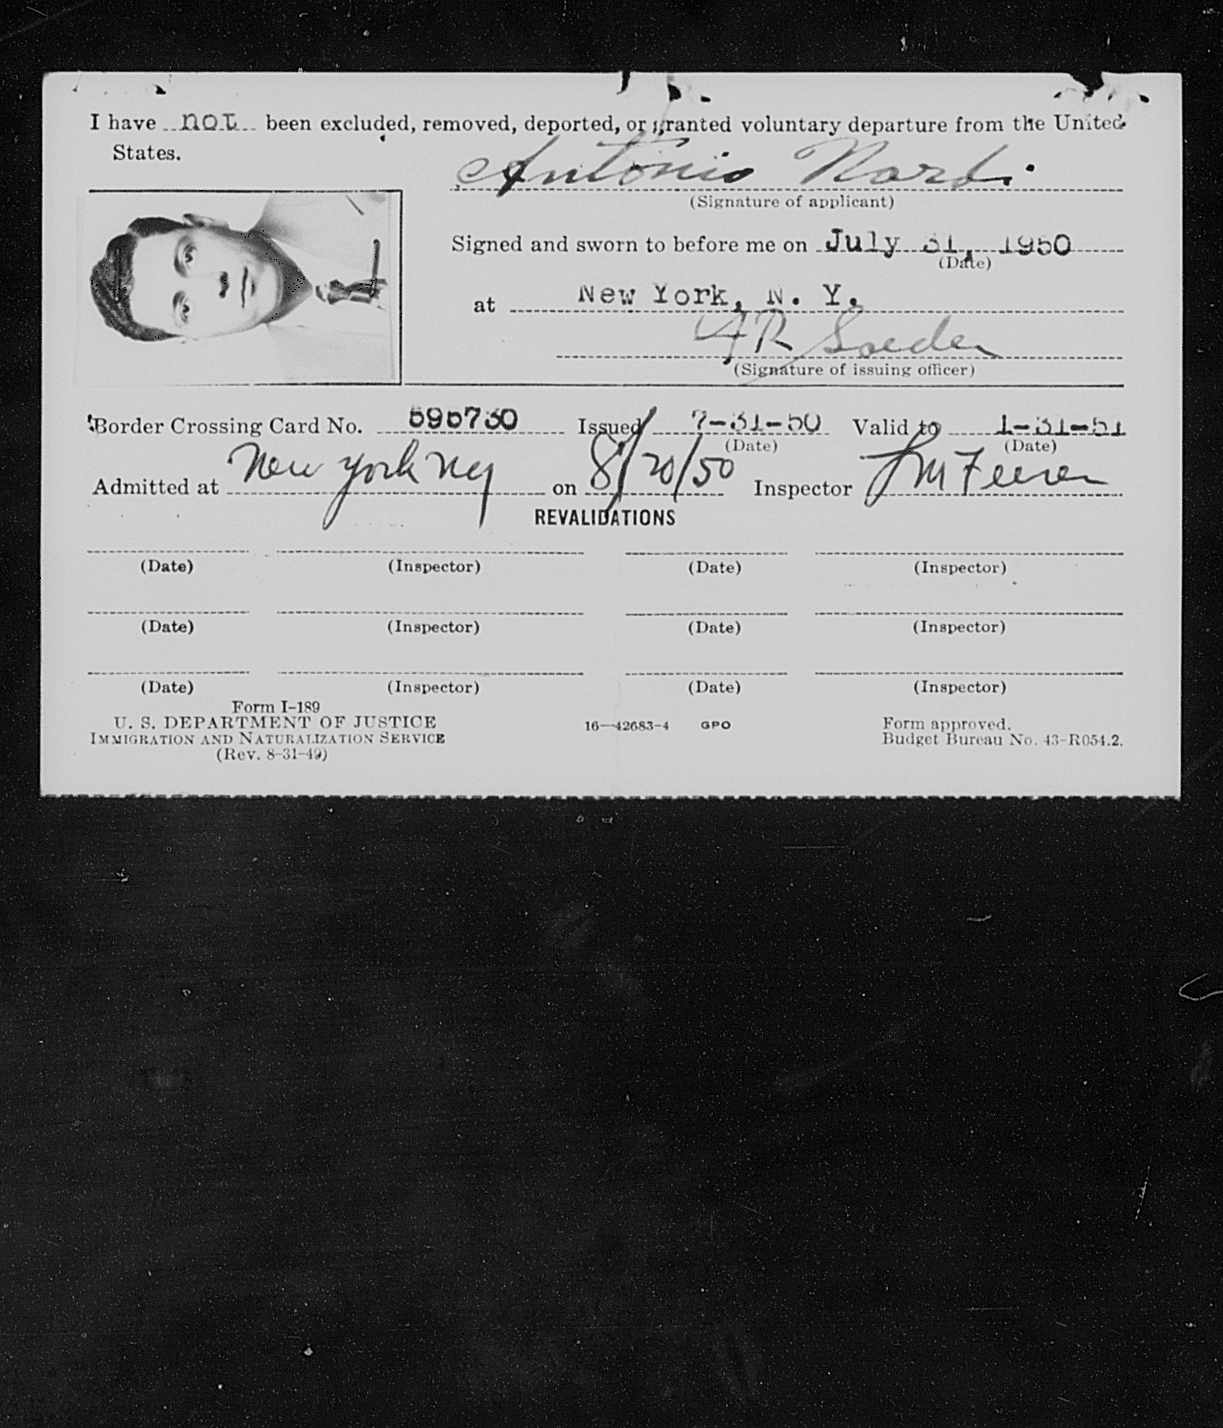 I have not been excluded, removed, deported, or granted voluntary departure from the United
States.
Antonio Nardi
(Signature of applicant)
Signed and sworn to before me on July 31, 1950
(Date)
at New York, N. Y.
(Signature of issuing officer)
Border Crossing Card No. 595730 Issued 7-31-50 Valid to 1-31-51
(Date) (Date)
Admitted at New York NY on 8/20/50 Inspector
REVALIDATIONS
(Date) (Inspector) (Date) (Inspector)
(Date) (Inspector) (Date) (Inspector)
(Date) (Inspector) (Date) (Inspector)
Form I-189
U. S. DEPARTMENT OF JUSTICE
IMMIGRATION AND NATURALIZATION SERVICE
(Rev. 8-31-49)
16—42683-4 GPO
Form approved.
Budget Bureau No. 43-R054.2.